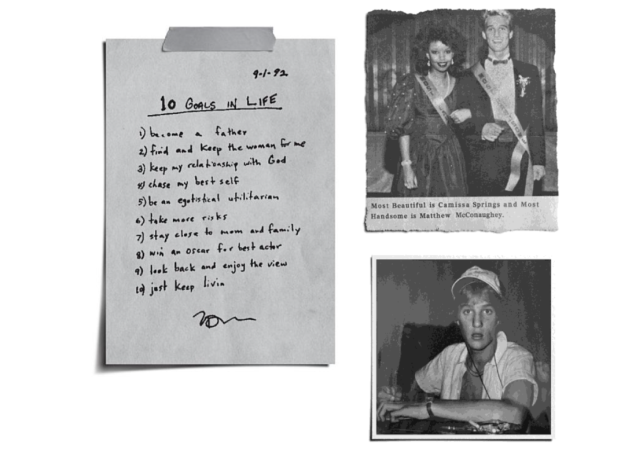 9-1-92
10 GOALS IN LIFE
1) become a father
2) find and keep the woman for me
3) keep my relationship with God
4) chase my best self
5) be an egotistical utilitarian
6) take more risks
7) stay close to mom and family
8) win an Oscar for best actor
9) look back and enjoy the view
10) just keep livin
Most Beautiful is Camissa Springs and Most
Handsome is Matthew McConaughey.